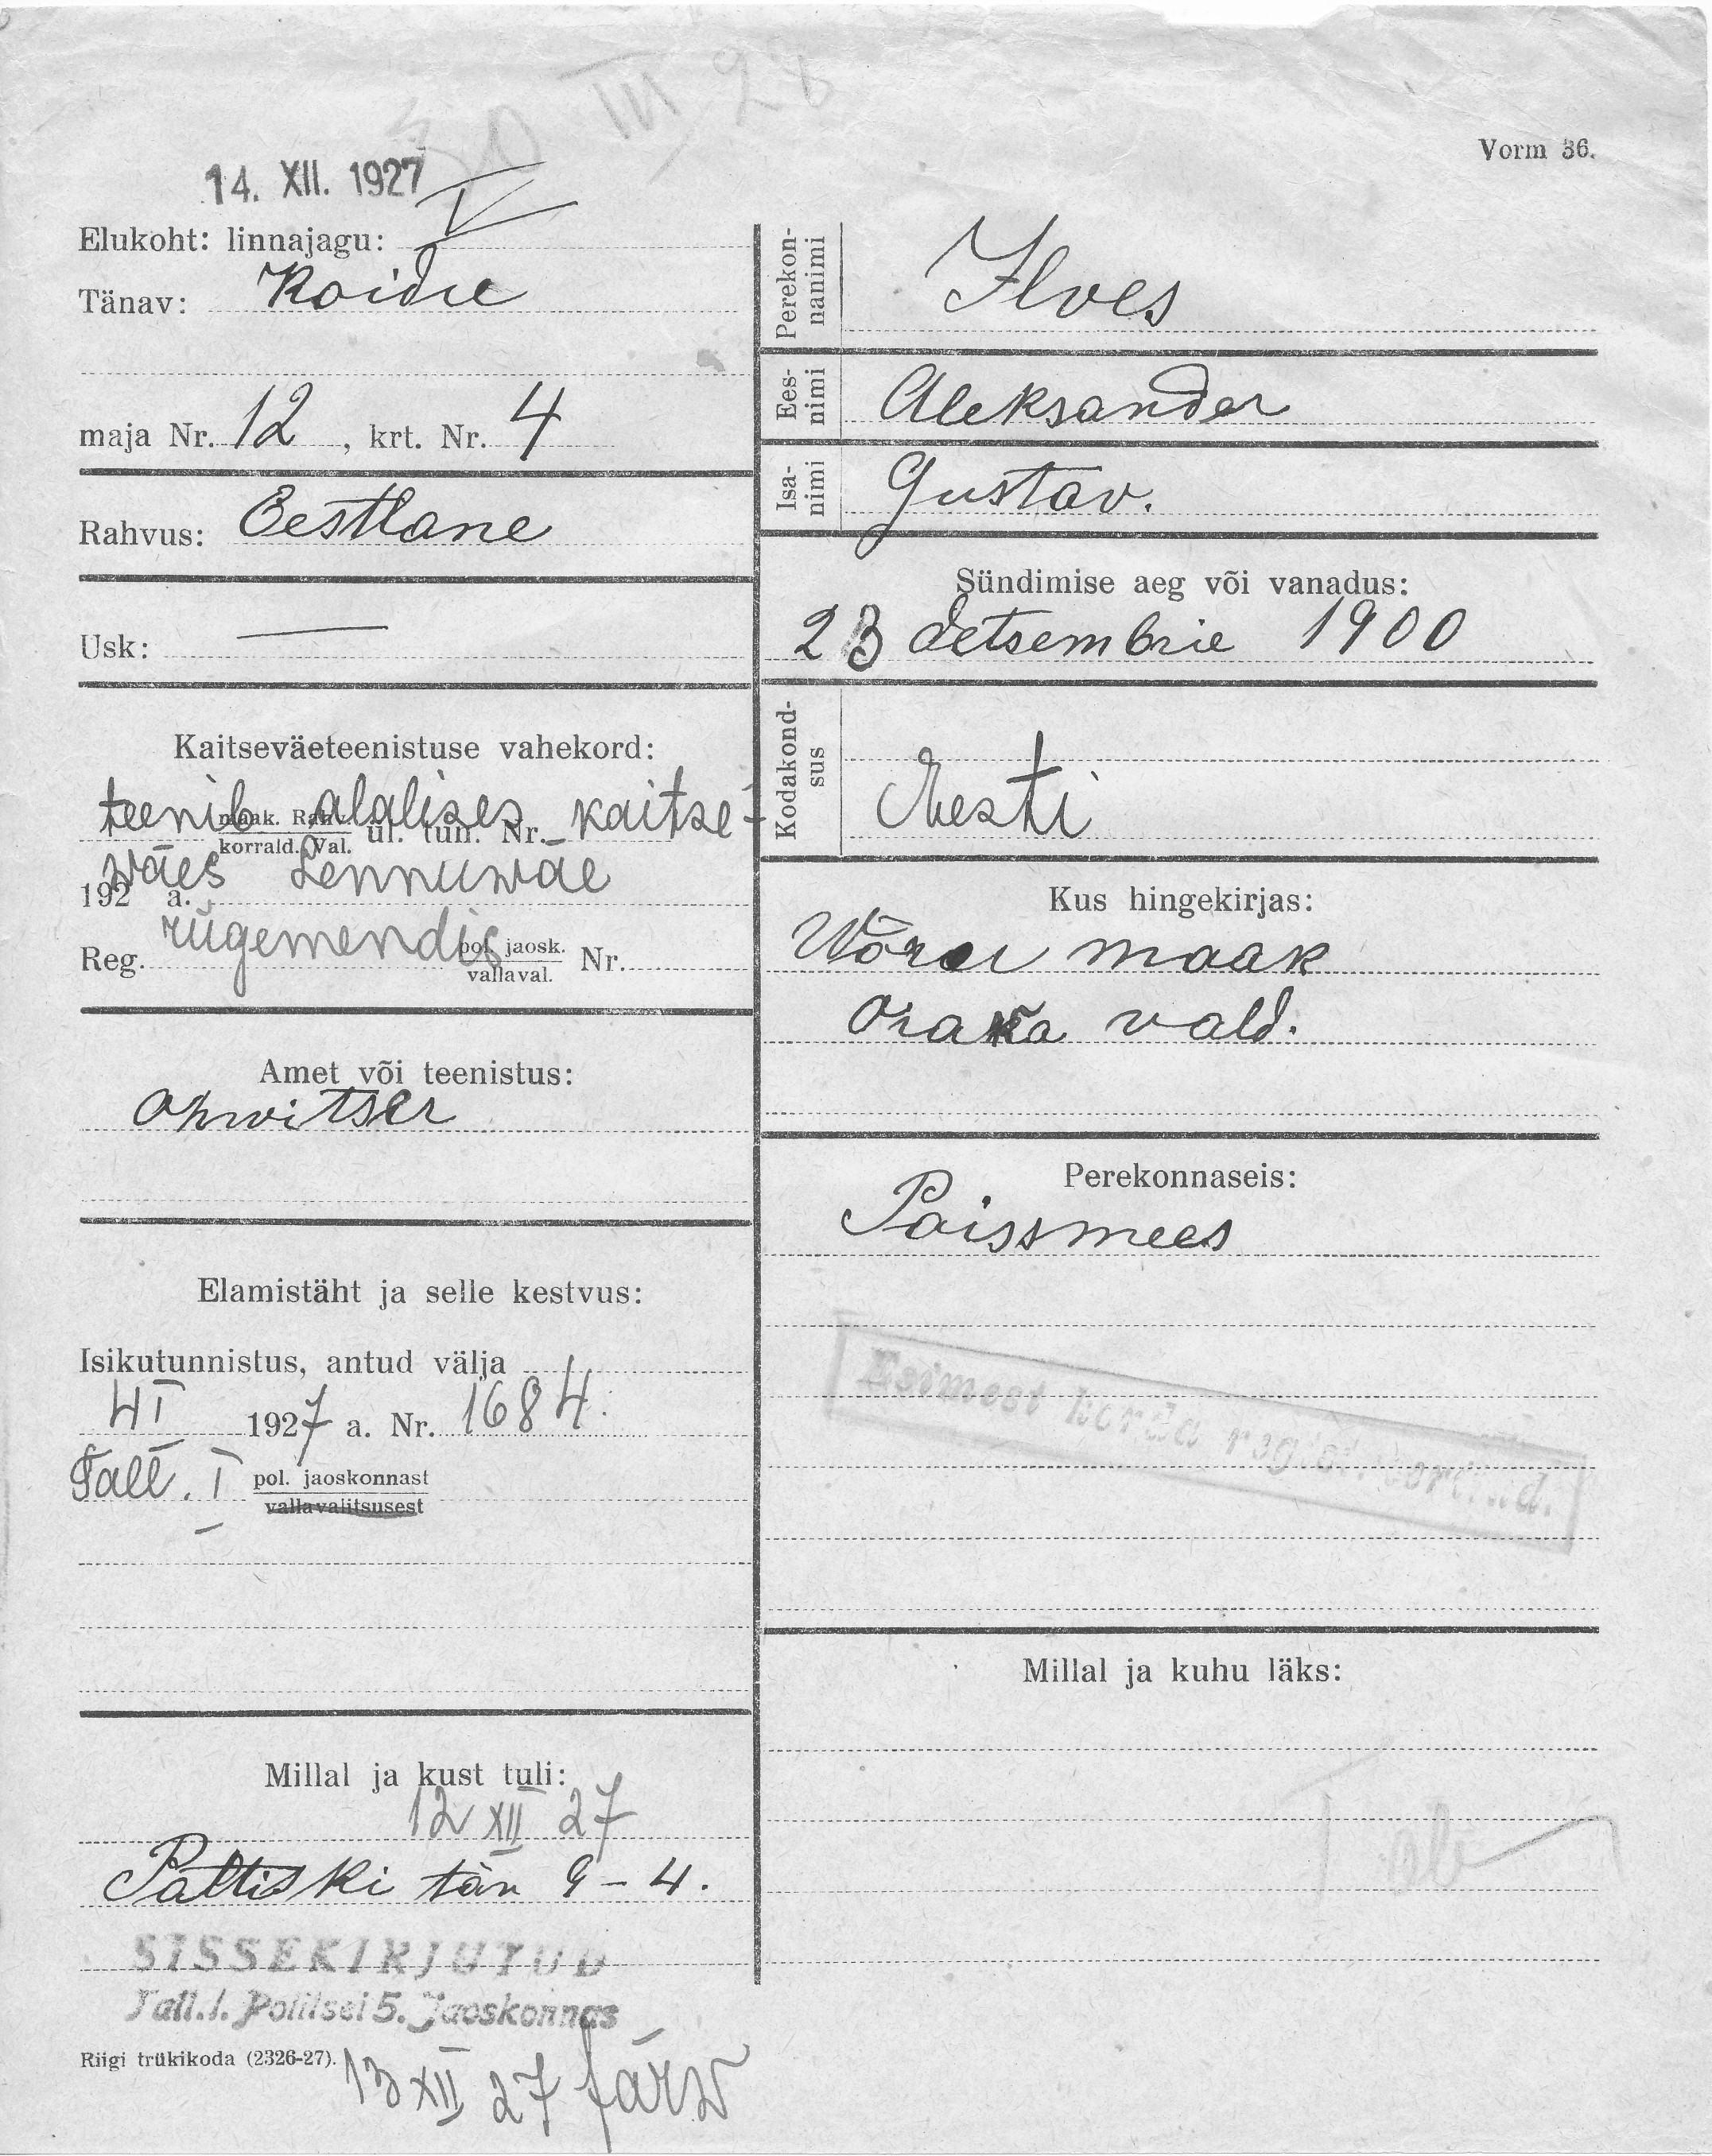 30 III 28
Vorm 36.
14. XII. 1927
Elukoht: linnajagu: V
Tänav: Koidu
maja Nr. 12, krt. Nr. 4
Rahvus: Eestlane
Usk: —
Kaitseväeteenistuse vahekord:
teenib alalises kaitse-
maak. Rahv.
korrald. Val. ül. tun. Nr.
wäes Lennuwäe
192 a.
rügemendis
Reg. pol. jaosk.
vallaval. Nr.
Amet või teenistus:
Ohwitser
Elamistäht ja selle kestvus:
Isikutunnistus, antud välja
4 I 1927 a. Nr. 1684.
Tall. I pol. jaoskonnast
vallavalitsusest
Millal ja kust tuli:
12 XII 27
Paltiski tän 9 - 4.
SISSEKIRJUTUD
Tall.l. Politsei 5. Jaoskonnas
Riigi trükikoda (2326-27).
13 XII 27 Järw
Perekon-
nanimi
Ilves
Ees-
nimi
Aleksander
Isa-
nimi
Gustav.
Sündimise aeg või vanadus:
23 detsembrie 1900
Kodakond-
sus
Eesti
Kus hingekirjas:
Wõru maak
Orawa vald.
Perekonnaseis:
Poissmees
Esimest korda registreeritud.
Millal ja kuhu läks: